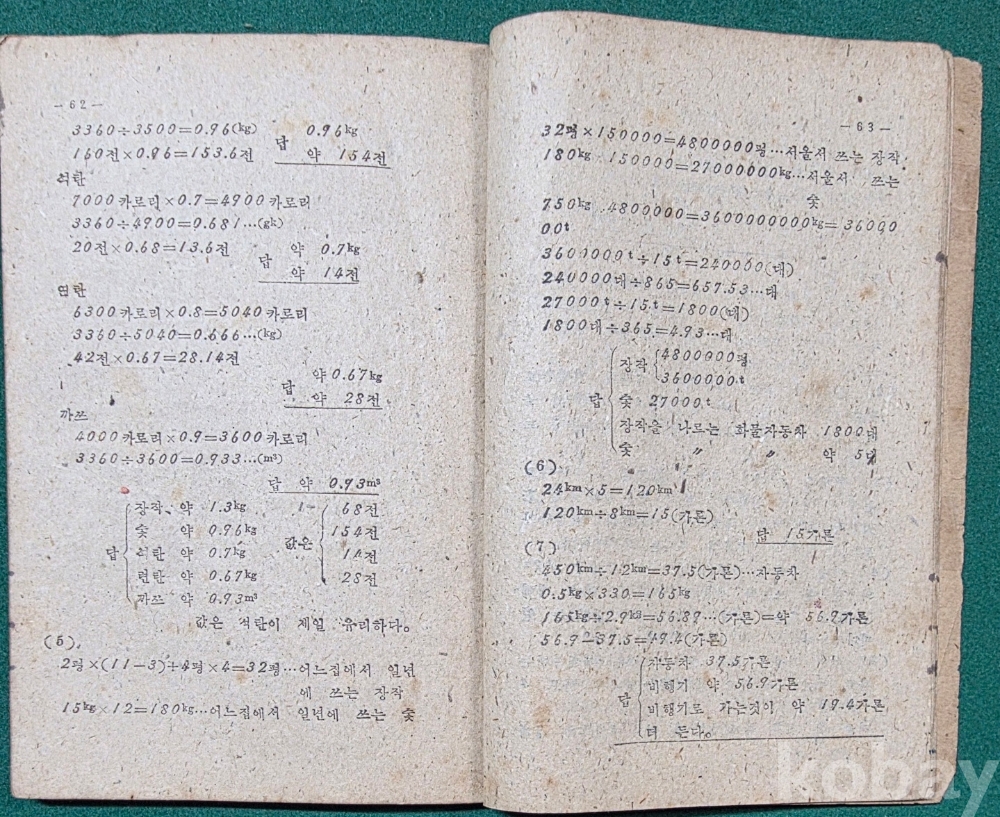 —62—
3360÷3500=0.96(kg) 0.96kg
답
160전×0.96=153.6전 약 154전
석탄
7000카로리×0.7=4900카로리
3360÷4900=0.681…(gk)
20전×0.68=13.6전 약 0.7kg
답
약 14전
연탄
6300카로리×0.8=5040카로리
3360÷5040=0.666…(kg)
42전×0.67=28.14전
약 0.67kg
답
약 28전
까쓰
4000카로리×0.9=3600카로리
3360÷3600=0.933…(m³)
답 약 0.93m³
장작 약 1.3kg 68전
숯 약 0.96kg 154전
답 석탄 약 0.7kg 값은 14전
련탄 약 0.67kg 28전
까쓰 약 0.93m³
값은 석탄이 제일 유리하다。
(5)
2평×(11-3)+4평×4=32평…어느집에서 일년
에 쓰는 장작
15kg×12=180kg…어느집에서 일년에 쓰는 숯
—63—
32평×150000=4800000평…서울서 쓰는 장작
180kg 150000=27000000kg…서울서 쓰는
숯
750kg 4800000=3600000000kg=36000
00t
3600000t÷15t=240000(대)
240000대÷365=657.53…대
27000t÷15t=1800(대)
1800대÷365=4.93…대
장작 4800000평
3600000t
답 숯 27000t
장작을 나르는 화물자동차 1800대
숯 〃 〃 약 5대
(6)
24km×5=120km
120km÷8km=15(가론)
답 15가론
(7)
450km÷12km=37.5(가론)…자동차
0.5kg×330=165kg
165kg÷2.9kg=56.89…(가론)=약 56.9가론
56.9-37.5=19.4(가론)
자동차 37.5가론
비행기 약 56.9가론
답 비행기로 가는것이 약 19.4가론
더 든다。
kobay